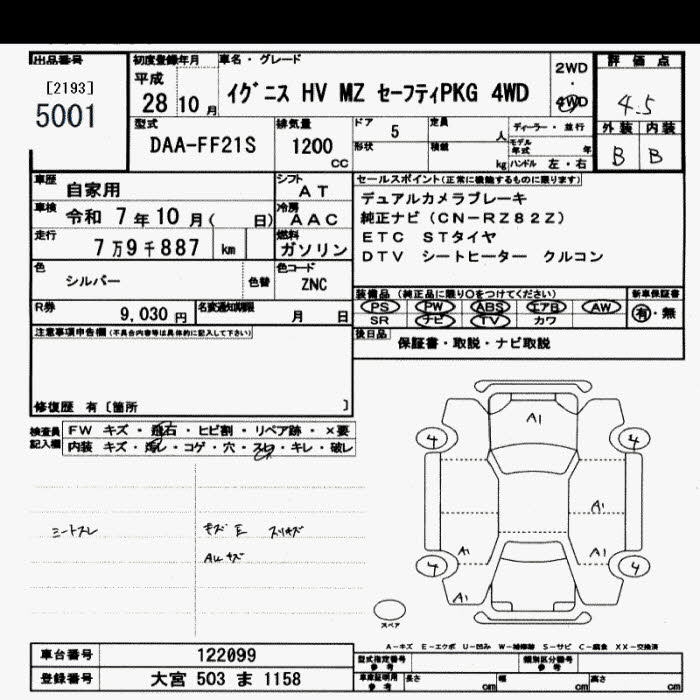 出品番号
[2193]
5001
初度登録年月
平成
28 10 月
車名・グレード
イグニス HV MZ セーフティPKG 4WD
2WD
・
4WD
評価点
4.5
外装 内装
B B
型式
DAA-FF21S
排気量
1200
cc
ドア 5
定員 人
形状
積載 kg
ディーラー・並行
モデル年式 年
ハンドル 左・右
車歴
自家用
シフト
AT
車検
令和 7 年 10 月( 日)
冷房
AAC
走行
7万9千887 km
燃料
ガソリン
色
シルバー
色替
色コード
ZNC
R券
9,030 円
名変通知期限
月 日
セールスポイント(正常に機能するものに限ります)
デュアルカメラブレーキ
純正ナビ(CN-RZ82Z)
ETC STタイヤ
DTV シートヒーター クルコン
装備品 (純正品に限り○をつけてください)
PS PW ABS エアB AW
SR ナビ TV カワ
新車保証書
有・無
後日品
保証書・取説・ナビ取説
注意事項申告欄(不具合内容等は具体的に記入して下さい)
修復歴 有〔箇所 〕
検査員記入欄
FW キズ・飛石・ヒビ割・リペア跡・×要
内装 キズ・汚レ・コゲ・穴・スレ・キレ・破レ
シートスレ
キズ E スリキズ
AWキズ
A1
4
4
A1
A1
A1
4
4
A1
スペア
A-キズ E-エクボ U-凹み W-補修跡 S-サビ C-腐食 XX-交換済
車台番号 122099
登録番号 大宮 503 ま 1158
型式指定番号
参考
類別区分番号
参考
車庫証明用
参考
長さ cm
幅 cm
高さ cm